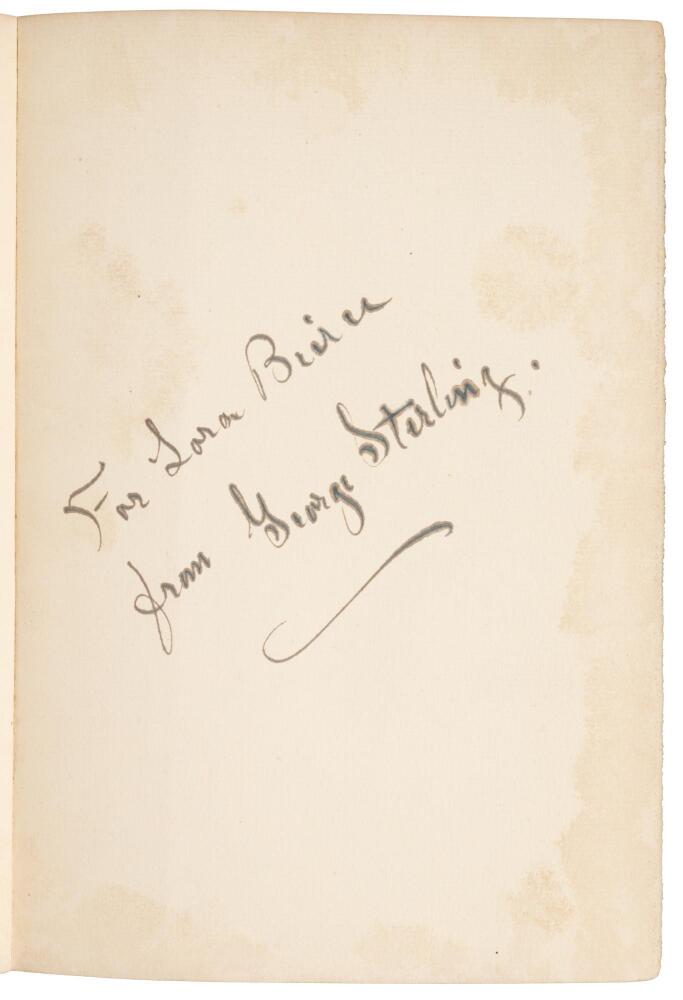 For Lora Bierce
from George Sterling.